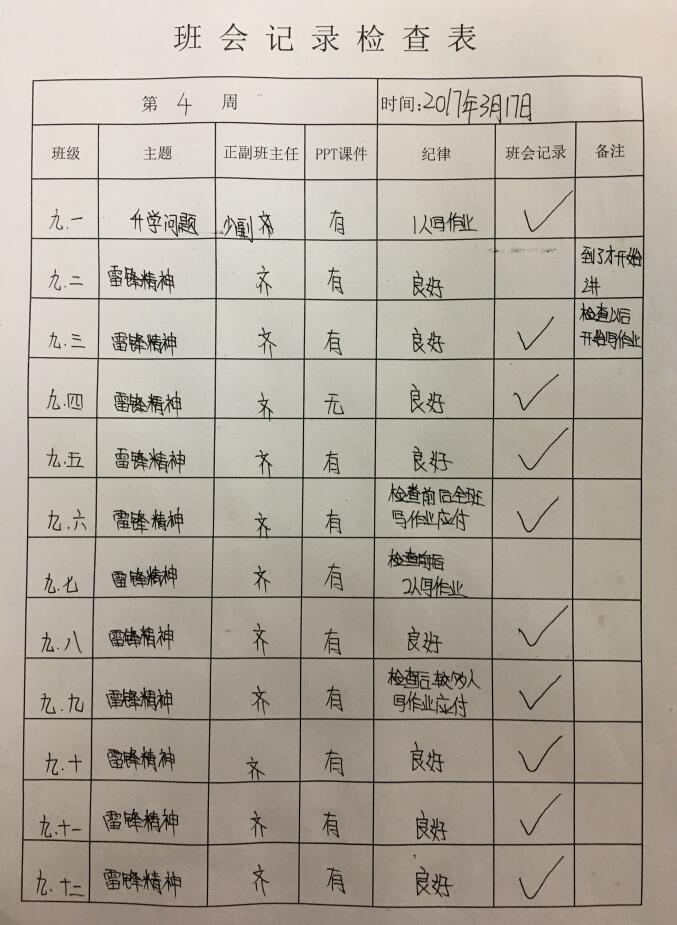 班会记录检查表
第 4 周 时间:2017年3月17日
班级 主题 正副班主任 PPT课件 纪律 班会记录 备注
九.一 升学问题 少副齐 有 1人写作业 ✓
九.二 雷锋精神 齐 有 良好 到了才开始讲
九.三 雷锋精神 齐 有 良好 ✓ 检查以后开始写作业
九.四 雷锋精神 齐 无 良好 ✓
九.五 雷锋精神 齐 有 良好 ✓
九.六 雷锋精神 齐 有 检查前后全班写作业应付 ✓
九.七 雷锋精神 齐 有 检查前后2人写作业
九.八 雷锋精神 齐 有 良好 ✓
九.九 雷锋精神 齐 有 检查后较多人写作业应付 ✓
九.十 雷锋精神 齐 有 良好 ✓
九.十一 雷锋精神 齐 有 良好 ✓
九.十二 雷锋精神 齐 有 良好 ✓